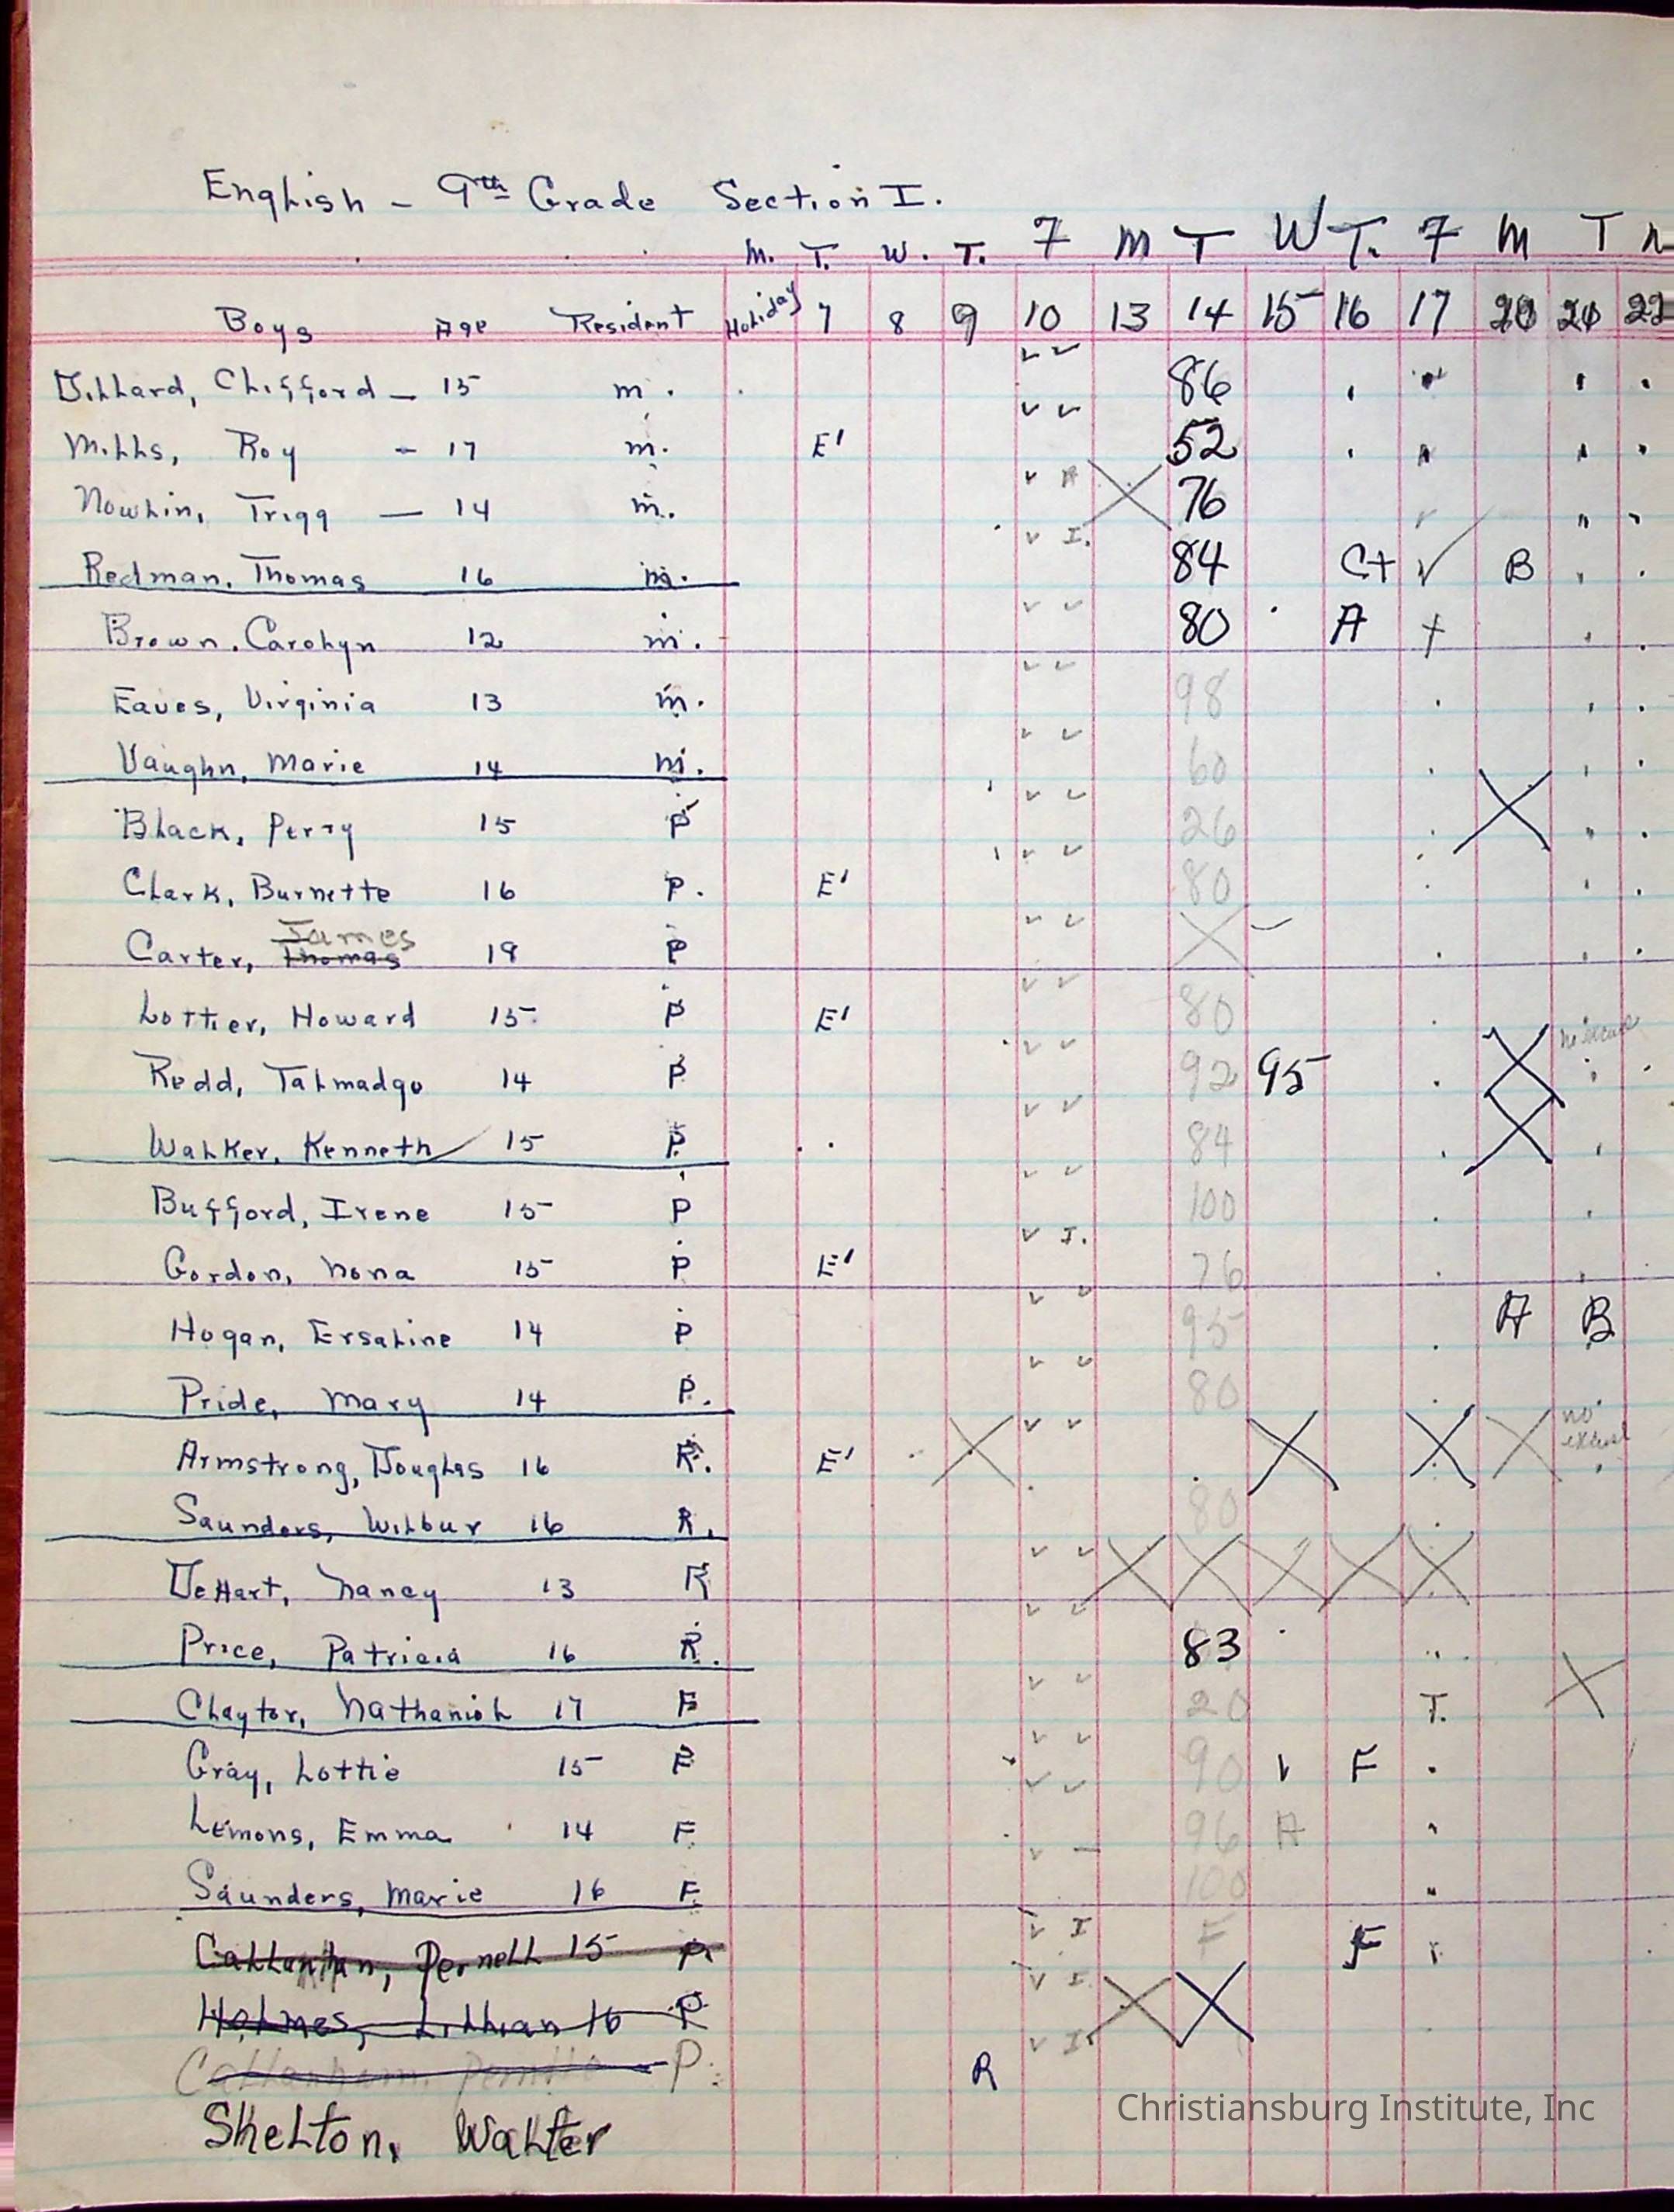 English - 9th Grade Section I.
M. T. W. T. F M T W T. F M T
Boys Age Resident Holiday 7 8 9 10 13 14 15 16 17 20 22
Dillard, Clifford - 15 m. 86
Mills, Roy - 17 m. E' 52
Nowlin, Trigg - 14 m. A 76
Redman, Thomas 16 m. I. 84 C+ ✓ B
Brown, Carolyn 12 m. 80 A
Eaves, Virginia 13 m. 98
Vaughn, Marie 14 m. 60
Black, Perry 15 P 26
Clark, Burnette 16 P. E' 80
James
Carter, Thomas 19 P
Lottier, Howard 15 P E' 80
no excuse
Redd, Talmadge 14 P 92 95
Walker, Kenneth 15 P. 84
Bufford, Irene 15 P 100
Gordon, Nona 15 P E' I. 76
Hogan, Ersaline 14 P 95 A B
Pride, Mary 14 P. 80
no excuse
Armstrong, Douglas 16 R. E'
Saunders, Wilbur 16 R. 80
DeHart, Nancy 13 R
Price, Patricia 16 R. 83
Claytor, Nathaniel 17 F 20 T.
Gray, Lottie 15 F 90 F
Lemons, Emma 14 F 96 A
Saunders, Marie 16 F. 100
Pernell 15 P. I F F
Holmes, Lillian 16 P I
P. R I
Shelton, Walter
Christiansburg Institute, Inc